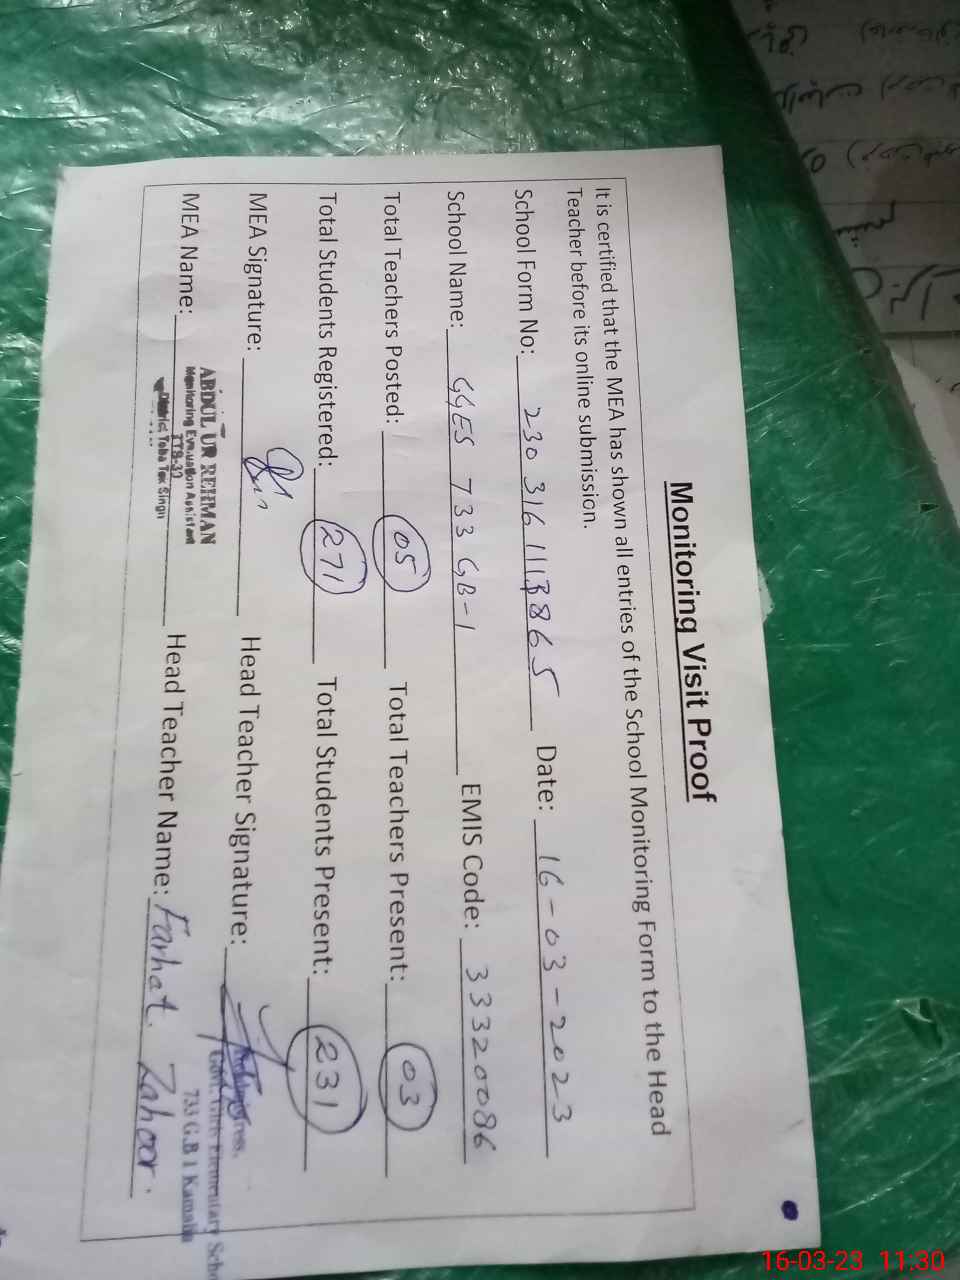 Monitoring Visit Proof
It is certified that the MEA has shown all entries of the School Monitoring Form to the Head
Teacher before its online submission.
School Form No: 230 316 111 8865 Date: 16-03-2023
School Name: GGES 733 GB-1 EMIS Code: 33320086
Total Teachers Posted: 05 Total Teachers Present: 03
Total Students Registered: 271 Total Students Present: 231
MEA Signature: Head Teacher Signature:
MEA Name: Head Teacher Name: Farhat. Zahoor.
ABDUL UR REHMAN
Monitoring Evaluation Assistant
TTS-32
District Toba Tek Singh
Govt. Girls Elementary
733 G.B 1 Kamalia
16-03-23 11:30